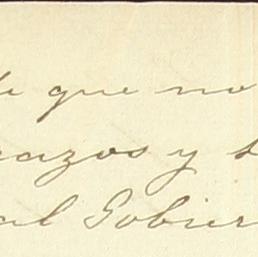 de que no
razos y s
al Gobier